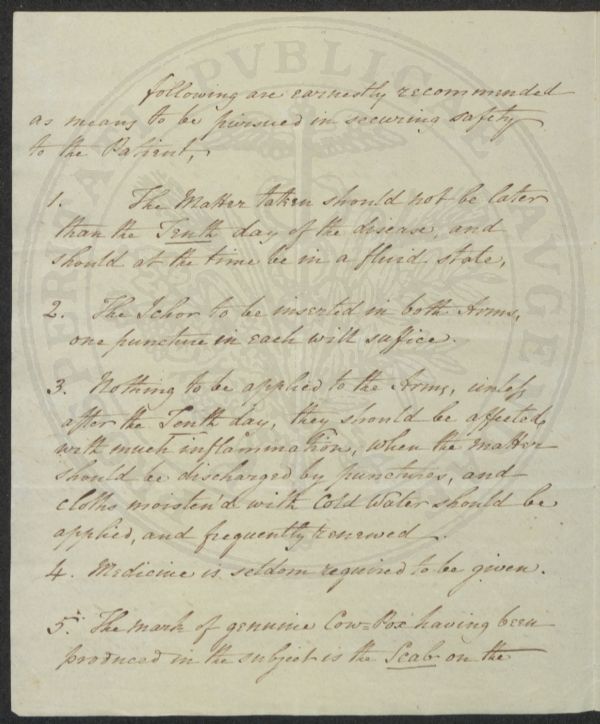 following are earnestly recommended
as means to be pursued in securing safety
to the Patient,
1. The Matter taken should not be later
than the Tenth day of the disease, and
should at the time be in a fluid state,
2. The Ichor to be inserted in both Arms,
one puncture in each will suffice.
3. Nothing to be applied to the Arms, unless
after the Tenth day, they should be affected,
with much inflammation, when the matter
should be discharged by punctures, and
cloths moisten'd with Cold Water should be
applied, and frequently renewed.
4. Medicine is seldom required to be given.
5. The mark of genuine Cow=Pox having been
produced in the subject is the Scab on the